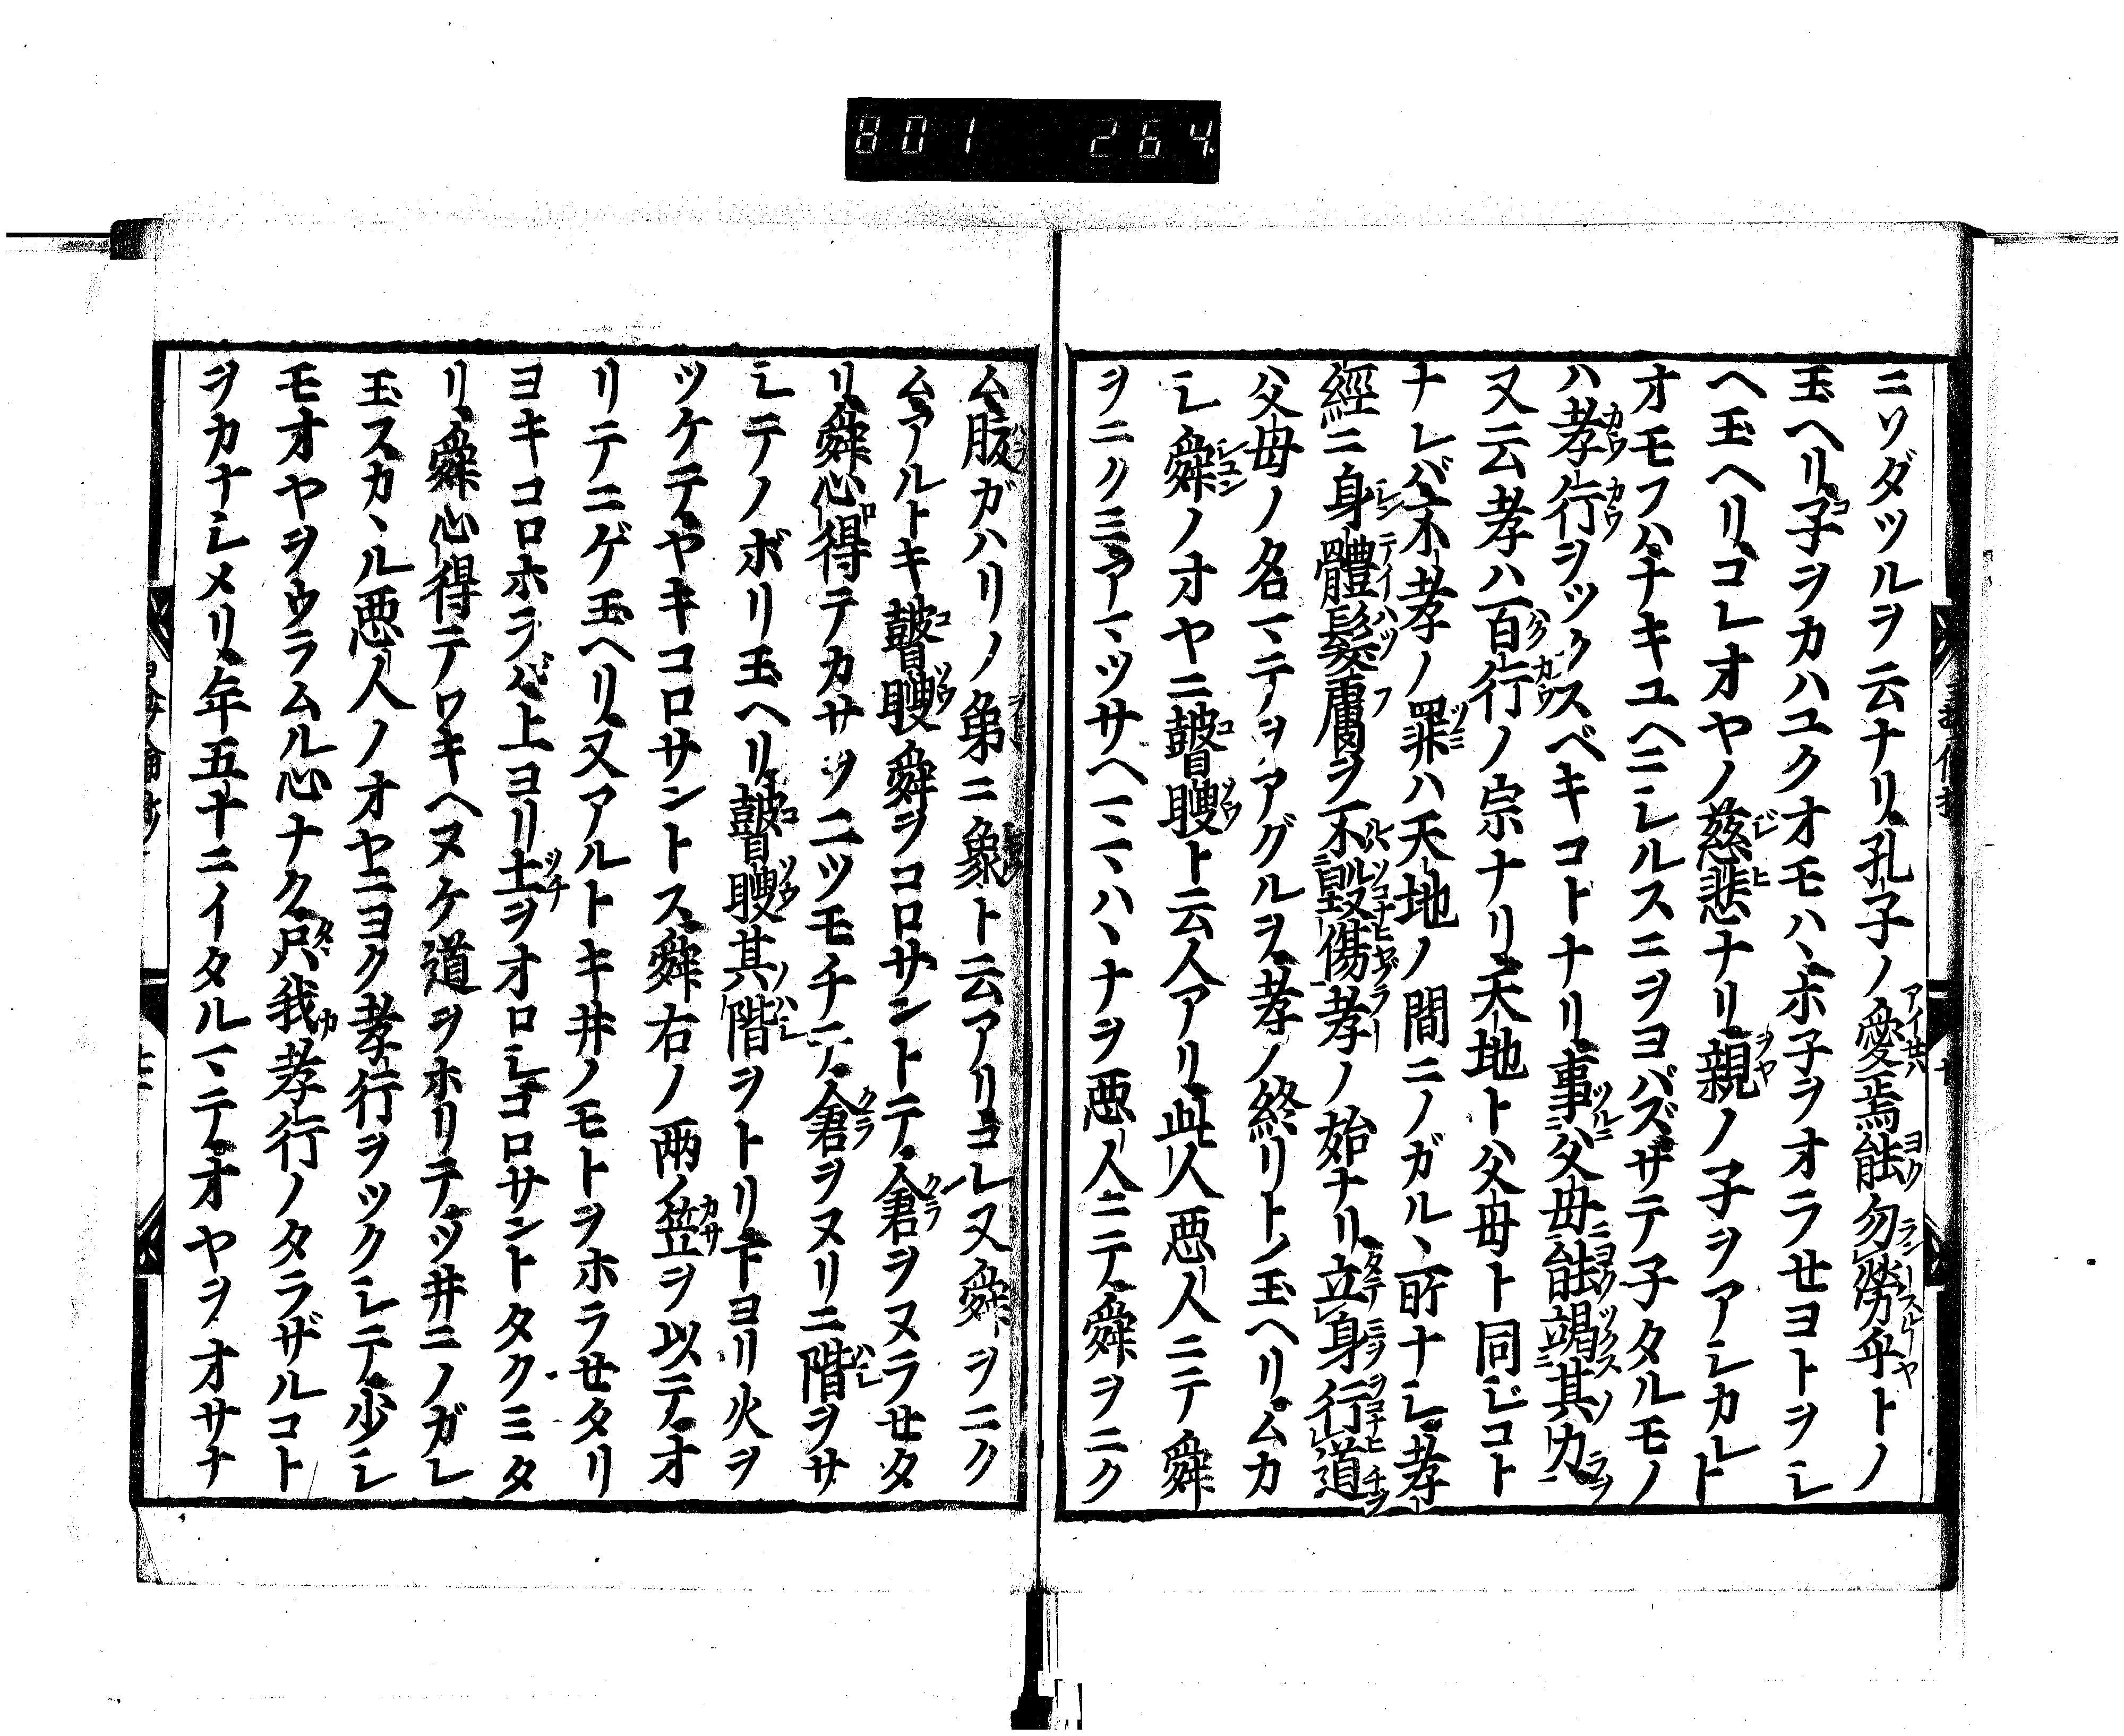 801 264
ニソダツルヲ云ナリ孔子ノ愛焉能勿勞乎トノ
玉ヘリ子ヲカハユクオモハヽホ子ヲオラせヨトヲシ
ヘ玉ヘリコレオヤノ慈悲ナリ親ノ子ヲアシカレト
オモフハナキユヘニシルスニヲヨバズサテ子タルモノ
ハ孝行ヲツクスベキコトナリ事父母能竭其力
又云孝ハ百行ノ宗ナリ天地ト父母ト同ジコト
ナレバ不孝ノ罪ハ天地ノ間ニノガルヽ所ナシ孝
經ニ身體髮膚ヲ不毀傷孝ノ始ナリ立身行道
父母ノ名マテヲアグルヲ孝ノ終リトノ玉ヘリムカ
シ舜ノオヤニ瞽瞍ト云人アリ此人悪人ニテ舜
ヲニクミアマツサヘママハヽナヲ悪人ニテ舜ヲニク
ム腹ガハリノ弟ニ象ト云アリコレ又舜ヲニク
ムアルトキ瞽瞍舜ヲコロサントテ倉ヲヌラせタ
リ舜心得テカサヲ二ツモチテ倉ヲヌリニ階ヲサ
シテノボリ玉ヘリ瞽瞍其階ヲトリ下ヨリ火ヲ
ツケテヤキコロサントス舜右ノ兩ノ笠ヲ以テオ
リテニゲ玉ヘリ又アルトキ井ノモトヲホラせタリ
ヨキコロホラバ上ヨリ土ヲオロシコロサントタクミタ
リ舜心得テワキヘヌケ道ヲホリテツ井ニノガレ
玉スカヽル悪人ノオヤニヨク孝行ヲツクシテ少シ
モオヤヲウラムル心ナク只我孝行ノタラザルコト
ヲカナシメリ年五十ニイタルマテオヤヲオサナ